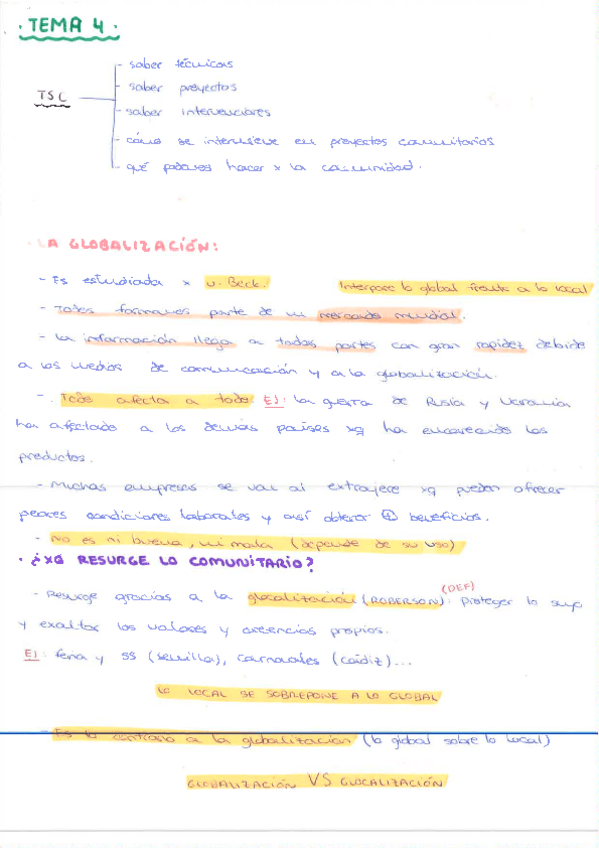 · TEMA 4 ·
- saber técnicas
- saber proyectos
TSC
- saber intervenciones
- cómo se interviene en proyectos comunitarios
- qué podemos hacer x la comunidad.
· LA GLOBALIZACIÓN:
- Es estudiada x U. Beck. Interpone lo global frente a lo local
- Todos formamos parte de un mercado mundial.
- La información llega a todas partes con gran rapidez debido
a los medios de comunicación y a la globalización.
- . Todo afecta a todo EJ: la guerra de Rusia y Ucrania
ha afectado a los demás países xq ha encarecido los
productos.
- Muchas empresas se van al extranjero xq pueden ofrecer
peores condiciones laborales y así obtener + beneficios.
- No es ni buena, ni mala (depende de su uso)
· ¿XQ RESURGE LO COMUNITARIO?
- Resurge gracias a la glocalización (ROBERSON): (DEF) Proteger lo suyo
y exaltar los valores y creencias propios.
EJ: feria y SS (sevilla), carnavales (cádiz)...
LO LOCAL SE SOBREPONE A LO GLOBAL
- Es lo contrario a la globalización (lo global sobre lo local)
GLOBALIZACIÓN VS GLOCALIZACIÓN